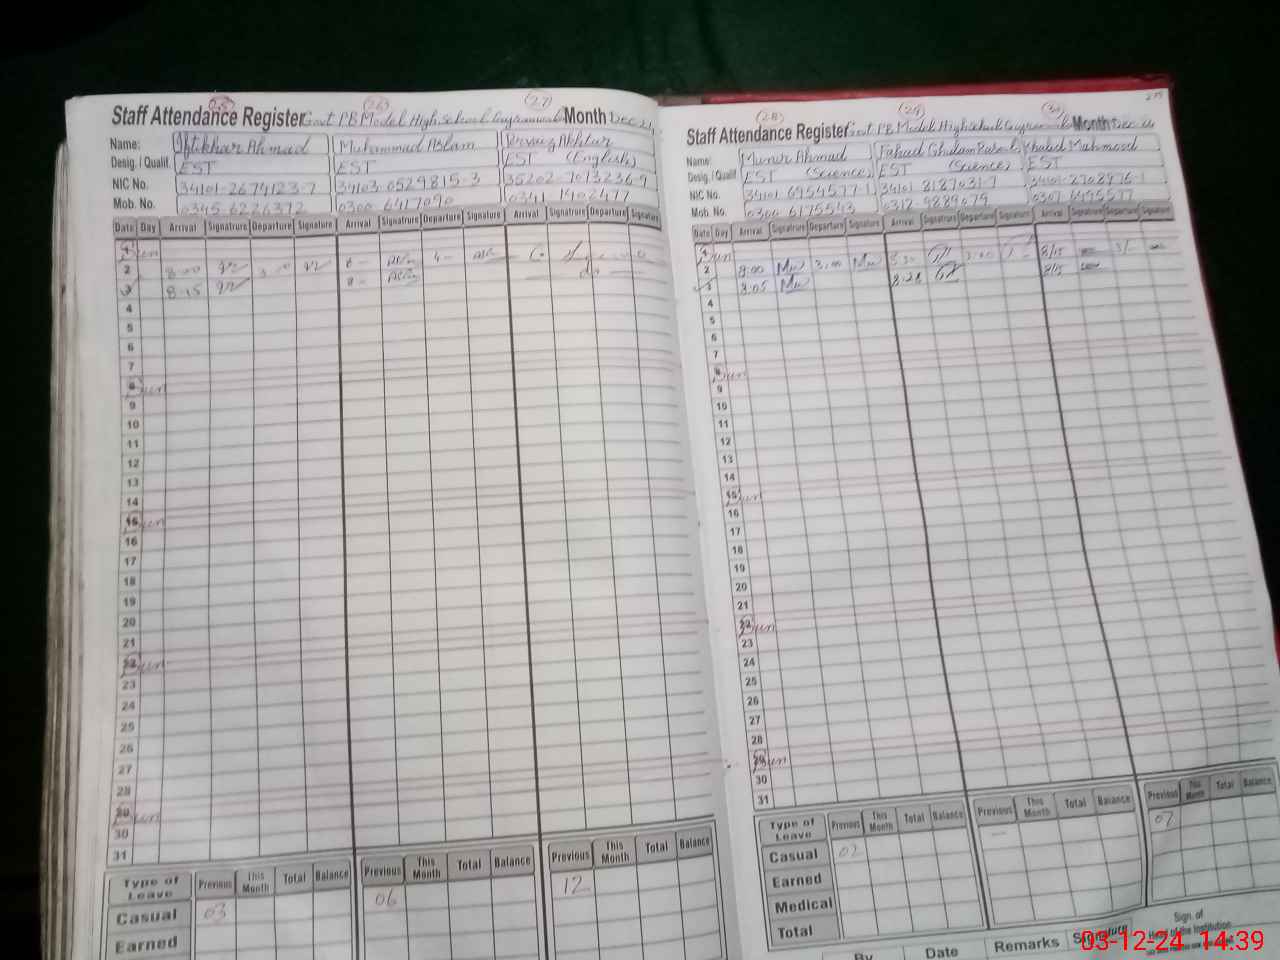 (25) (26) (27)
Staff Attendance Register Govt PB Model High School Month Dec 24
Name: Iftikhar Ahmad Muhammad Aslam Pervaiz Akhtar
Desig. / Qualif. EST EST EST (English)
NIC No. 34101-2674123-7 34103 0529815-3 35202-7013236-9
Mob. No. 0345 6226372 0300 6417090 0341 1402477
Date Day Arrival Signatrure Departure Signature Arrival Signatrure Departure Signature Arrival Signatrure Departure Signature
1 Sun
2 8:00
3 8:15
4
5
6
7
8 Sun
9
10
11
12
13
14
15 Sun
16
17
18
19
20
21
22 Sun
23
24
25
26
27
28
29 Sun
30
31
Type of Leave Previous This Month Total Balance Previous This Month Total Balance Previous This Month Total Balance
Casual 03 06 12
Earned
(28) (29) (30)
Staff Attendance Register Govt PB Model High School Month Dec 24
Name: Munir Ahmad Fahad Ghulam Khalid Mahmood
Desig. / Qualif EST (Science) EST (Science) EST
NIC No. 34101 6954577-1 34101 8187031-7
Mob. No. 0300 6175543 0312-9889079
Date Day Arrival Signatrure Departure Signature Arrival Signatrure Departure Signature Arrival Signatrure Departure Signature
1 Sun
2 8:00 Mu 3:00 Mu 8/15
3 8:05 Mu 8:28 8/15
4
5
6
7
8 Sun
9
10
11
12
13
14
15 Sun
16
17
18
19
20
21
22 Sun
23
24
25
26
27
28
29 Sun
30
31
Type of Leave Previous This Month Total Balance Previous This Month Total Balance Previous This Month Total Balance
Casual 02 07
Earned
Medical
Total
By Date Remarks Signature Sign. of Head of the Institution
03-12-24 14:39